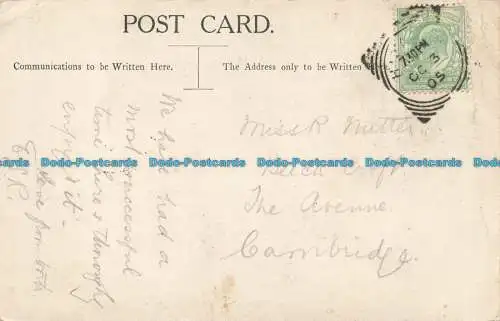 POST CARD.
Communications to be Written Here.
The Address only to be Written Here.
7.30PM
OC 3
05
We have had a
most successful
time here & thoroughly
enjoyed it -
Love from both
E.R.
Miss R
Beech Croft
The Avenue
Cambridge.
Dado-Postcards Dado-Postcards Dado-Postcards Dado-Postcards Dado-Postcards Dado-Postcards